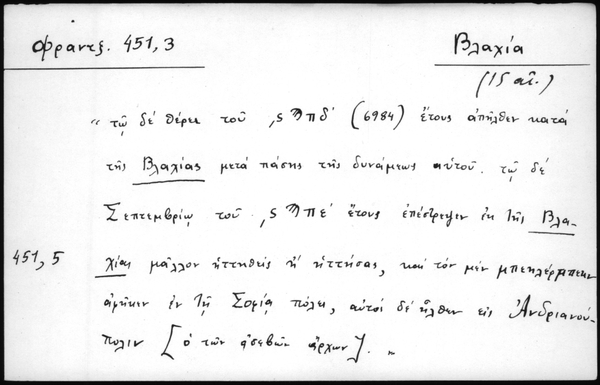 Φραντζ. 451,3
Βλαχία
(15 αἰ.)
"τῷ δέ θέρει τοῦ ͵ϛϠπδ' (6984) ἔτους ἀπῆλθεν κατά
τῆς Βλαχίας μετά πάσης τῆς δυνάμεως αὐτοῦ. τῷ δέ
Σεπτεμβρίῳ τοῦ ͵ϛϠπε' ἔτους ἐπέστρεψεν ἐκ τῆς Βλα-
451,5
χίας μᾶλλον ἡττηθείς ἤ ἡττήσας, καί τόν μέν μπεκλέρμπεκιν
ἀφῆκεν ἐν τῇ Σοφίᾳ πόλει, αὐτός δέ ἦλθεν εἰς Ἀνδριανού-
πολιν [ὁ τῶν ἀσεβῶν ἄρχων]. "